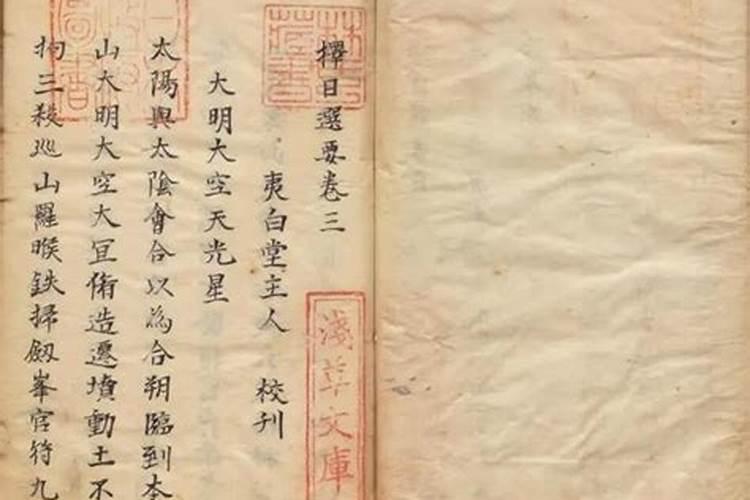 擇日選要卷三
夷白堂主人 校刋
大明大空天光星
太陽與太陰會合以為合朔臨到本
山大明大空大冝俻造遷墳動土不
拘三殺巡山羅睺鉄掃劔峯官符九
淺草文庫